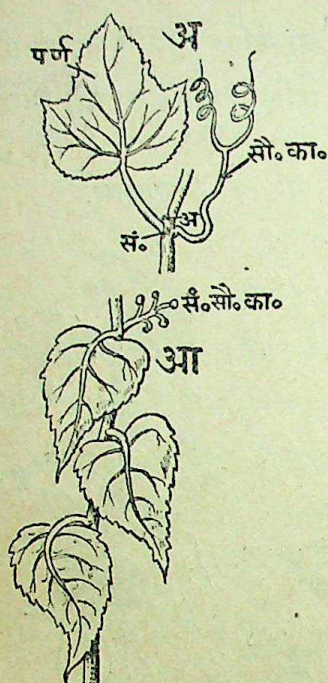 अ
पर्ण
सौ॰ का॰
अ
सं॰
सं॰सौ॰ का॰
आ